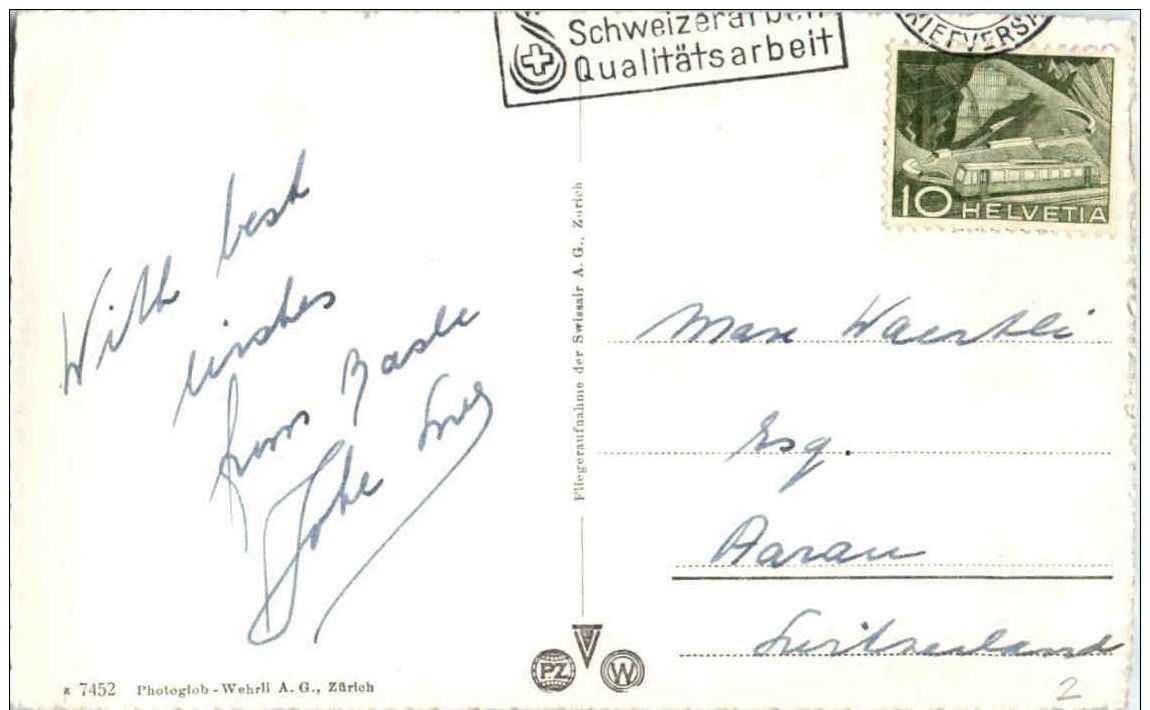 Schweizerarbeit
Qualitätsarbeit
BRIEFVERSA
10 HELVETIA
With best
wishes
from Basle
Fliegeraufnahme der Swissair A. G., Zürich
Max
Esq.
Aarau
Switzerland
PZ
W
7452 Photoglob-Wehrli A. G., Zürich
2